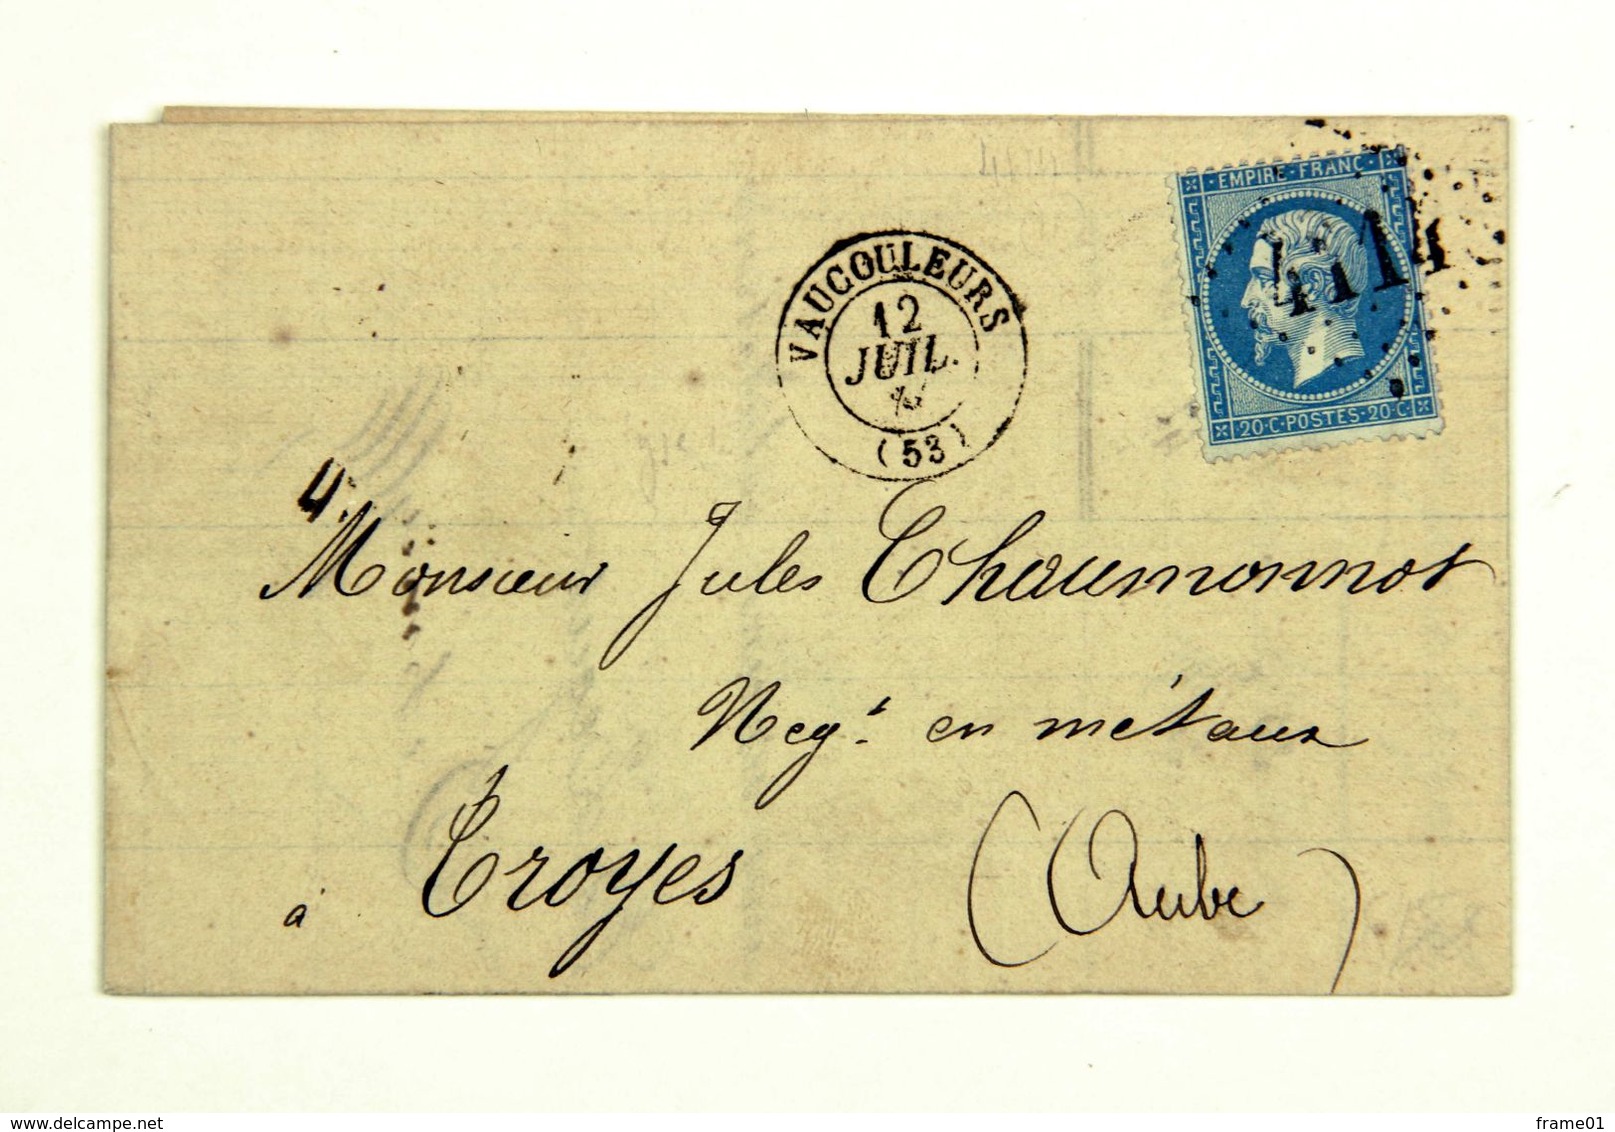 EMPIRE·FRANC
4114
20·C·POSTES·20·C
VAUCOULEURS
12
JUIL.
(53)
4.
Monsieur Jules Thaumonnot
Negt. en métaux
à Troyes (Aube)
delcampe.net
frame01